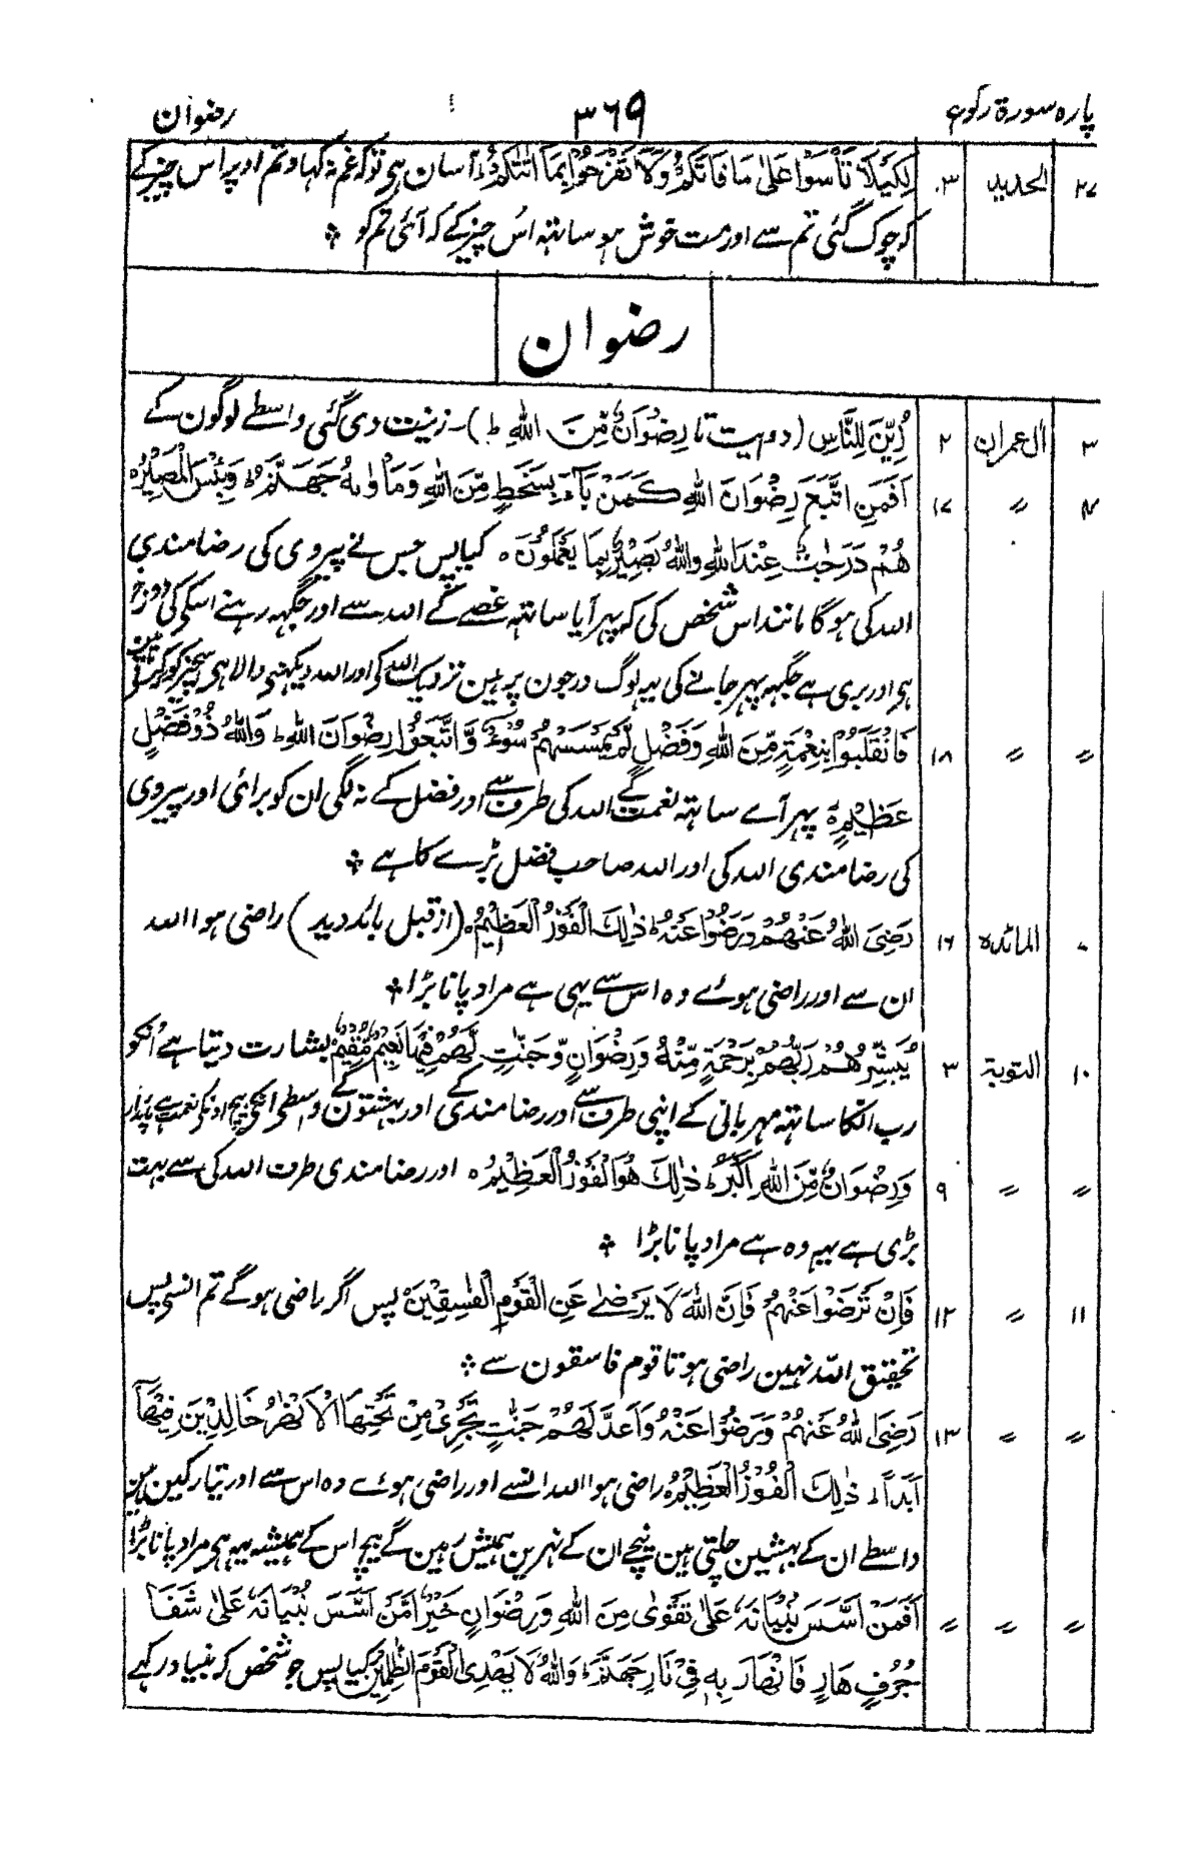 پارہ سورۃ رکوع ۳۶۹ رضوان
۲۷ الحدید ۳ لِكَيْلَا تَأْسَوْا عَلٰى مَا فَاتَكُمْ وَلَا تَفْرَحُوْا بِمَآ اٰتٰىكُمْ ؕ آسان ہی توکہ غم نہ کہاو تم اوپر اس چیز کے
کہ چوک گئی تم سے اور مت خوش ہو ساتہہ اُس چیز کے کہ آئی تم کو ؞
رضوان
۳ اٰل عمران ۲ زُيِّنَ لِلنَّاسِ (دوبیت تا رِضْوَانٌ مِّنَ اللّٰهِ ط) ۔ زینت دی گئی واسطے لوگون کے
۴ 〃 ۱۷ اَفَمَنِ اتَّبَعَ رِضْوَانَ اللّٰهِ كَمَنْ بَآءَ بِسَخَطٍ مِّنَ اللّٰهِ وَمَاْوٰىهُ جَهَنَّمُ ؕ وَبِئْسَ الْمَصِيْرُ ه
هُمْ دَرَجٰتٌ عِنْدَ اللّٰهِ وَاللّٰهُ بَصِيْرٌۢ بِمَا يَعْمَلُوْنَ ه کیا پس جس نے پیروی کی رضامندی
اللہ کی ہوگا مانند اس شخص کی کہ پہر آیا ساتہہ غصے کے اللہ سے اور جگہہ رہنے اسکی کی دوزخ
ہی اور بری ہے جگہہ پہر جانے کی یہہ لوگ درجون پر ہین نزدیک اللہ کی اور اللہ دیکہنی والا ہی
〃 〃 ۱۸ فَانْقَلَبُوْا بِنِعْمَةٍ مِّنَ اللّٰهِ وَفَضْلٍ لَّمْ يَمْسَسْهُمْ سُوْءٌ وَّاتَّبَعُوْا رِضْوَانَ اللّٰهِ ؕ وَاللّٰهُ ذُوْ فَضْلٍ
عَظِيْمٍ ه پہر آے ساتہہ نعمت کے اللہ کی طرف سے اور فضل کے نہ لگی ان کو برائی اور پیروی
کی رضامندی اللہ کی اور اللہ صاحب فضل بڑے کا ہے ؞
۷ المائدہ ۱۶ رَضِيَ اللّٰهُ عَنْهُمْ وَرَضُوْا عَنْهُ ؕ ذٰلِكَ الْفَوْزُ الْعَظِيْمُ ه (از قبل بائد دید) راضی ہوا اللہ
ان سے اور راضی ہوئے وہ اس سے یہی ہے مراد پانا بڑا ؞
۱۰ التوبۃ ۳ يُبَشِّرُهُمْ رَبُّهُمْ بِرَحْمَةٍ مِّنْهُ وَرِضْوَانٍ وَّجَنّٰتٍ لَّهُمْ فِيْهَا نَعِيْمٌ مُّقِيْمٌ بشارت دیتا ہے اُنکو
رب انکا ساتہہ مہربانی کے اپنی طرف سے اور رضامندی کے اور بہشتون کے واسطی انکی بیچ اونکی نعمت ہے پایدار
〃 〃 ۹ وَرِضْوَانٌ مِّنَ اللّٰهِ اَكْبَرُ ؕ ذٰلِكَ هُوَ الْفَوْزُ الْعَظِيْمُ ه اور رضامندی طرف اللہ کی سے بہت
بڑی ہے یہہ وہ ہے مراد پانا بڑا ؞
۱۱ 〃 ۱۲ فَاِنْ تَرْضَوْا عَنْهُمْ فَاِنَّ اللّٰهَ لَا يَرْضٰى عَنِ الْقَوْمِ الْفٰسِقِيْنَ پس اگر راضی ہوگے تم انسی پس
تحقیق اللہ نہین راضی ہوتا قوم فاسقون سے ؞
〃 〃 ۱۳ رَضِيَ اللّٰهُ عَنْهُمْ وَرَضُوْا عَنْهُ وَاَعَدَّ لَهُمْ جَنّٰتٍ تَجْرِيْ مِنْ تَحْتِهَا الْاَنْهٰرُ خَالِدِيْنَ فِيْهَآ
اَبَدًا ؕ ذٰلِكَ الْفَوْزُ الْعَظِيْمُ ه راضی ہوا اللہ انسے اور راضی ہوئے وہ اس سے اور تیار کین ہین
واسطے ان کے بہشتین چلتی ہین نیچے ان کے نہرین ہمیش رہین گے بیچ اس کے ہمیشہ یہہ ہی مراد پانا بڑا
〃 〃 〃 اَفَمَنْ اَسَّسَ بُنْيَانَهٗ عَلٰى تَقْوٰى مِنَ اللّٰهِ وَرِضْوَانٍ خَيْرٌ اَمْ مَّنْ اَسَّسَ بُنْيَانَهٗ عَلٰى شَفَا
جُرُفٍ هَارٍ فَانْهَارَ بِهٖ فِيْ نَارِ جَهَنَّمَ ؕ وَاللّٰهُ لَا يَهْدِى الْقَوْمَ الظّٰلِمِيْنَ کیا پس جو شخص کہ بنیاد رکہے